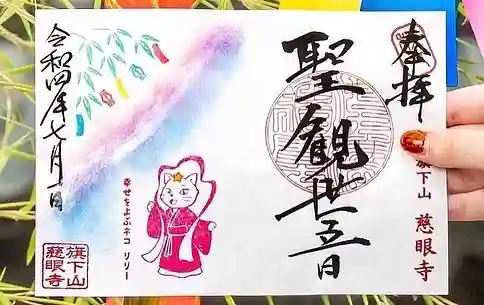 奉拝
聖観世音
旗下山 慈眼寺
令和四年七月一日
幸せをよぶネコ リリー
旗下山
慈眼寺